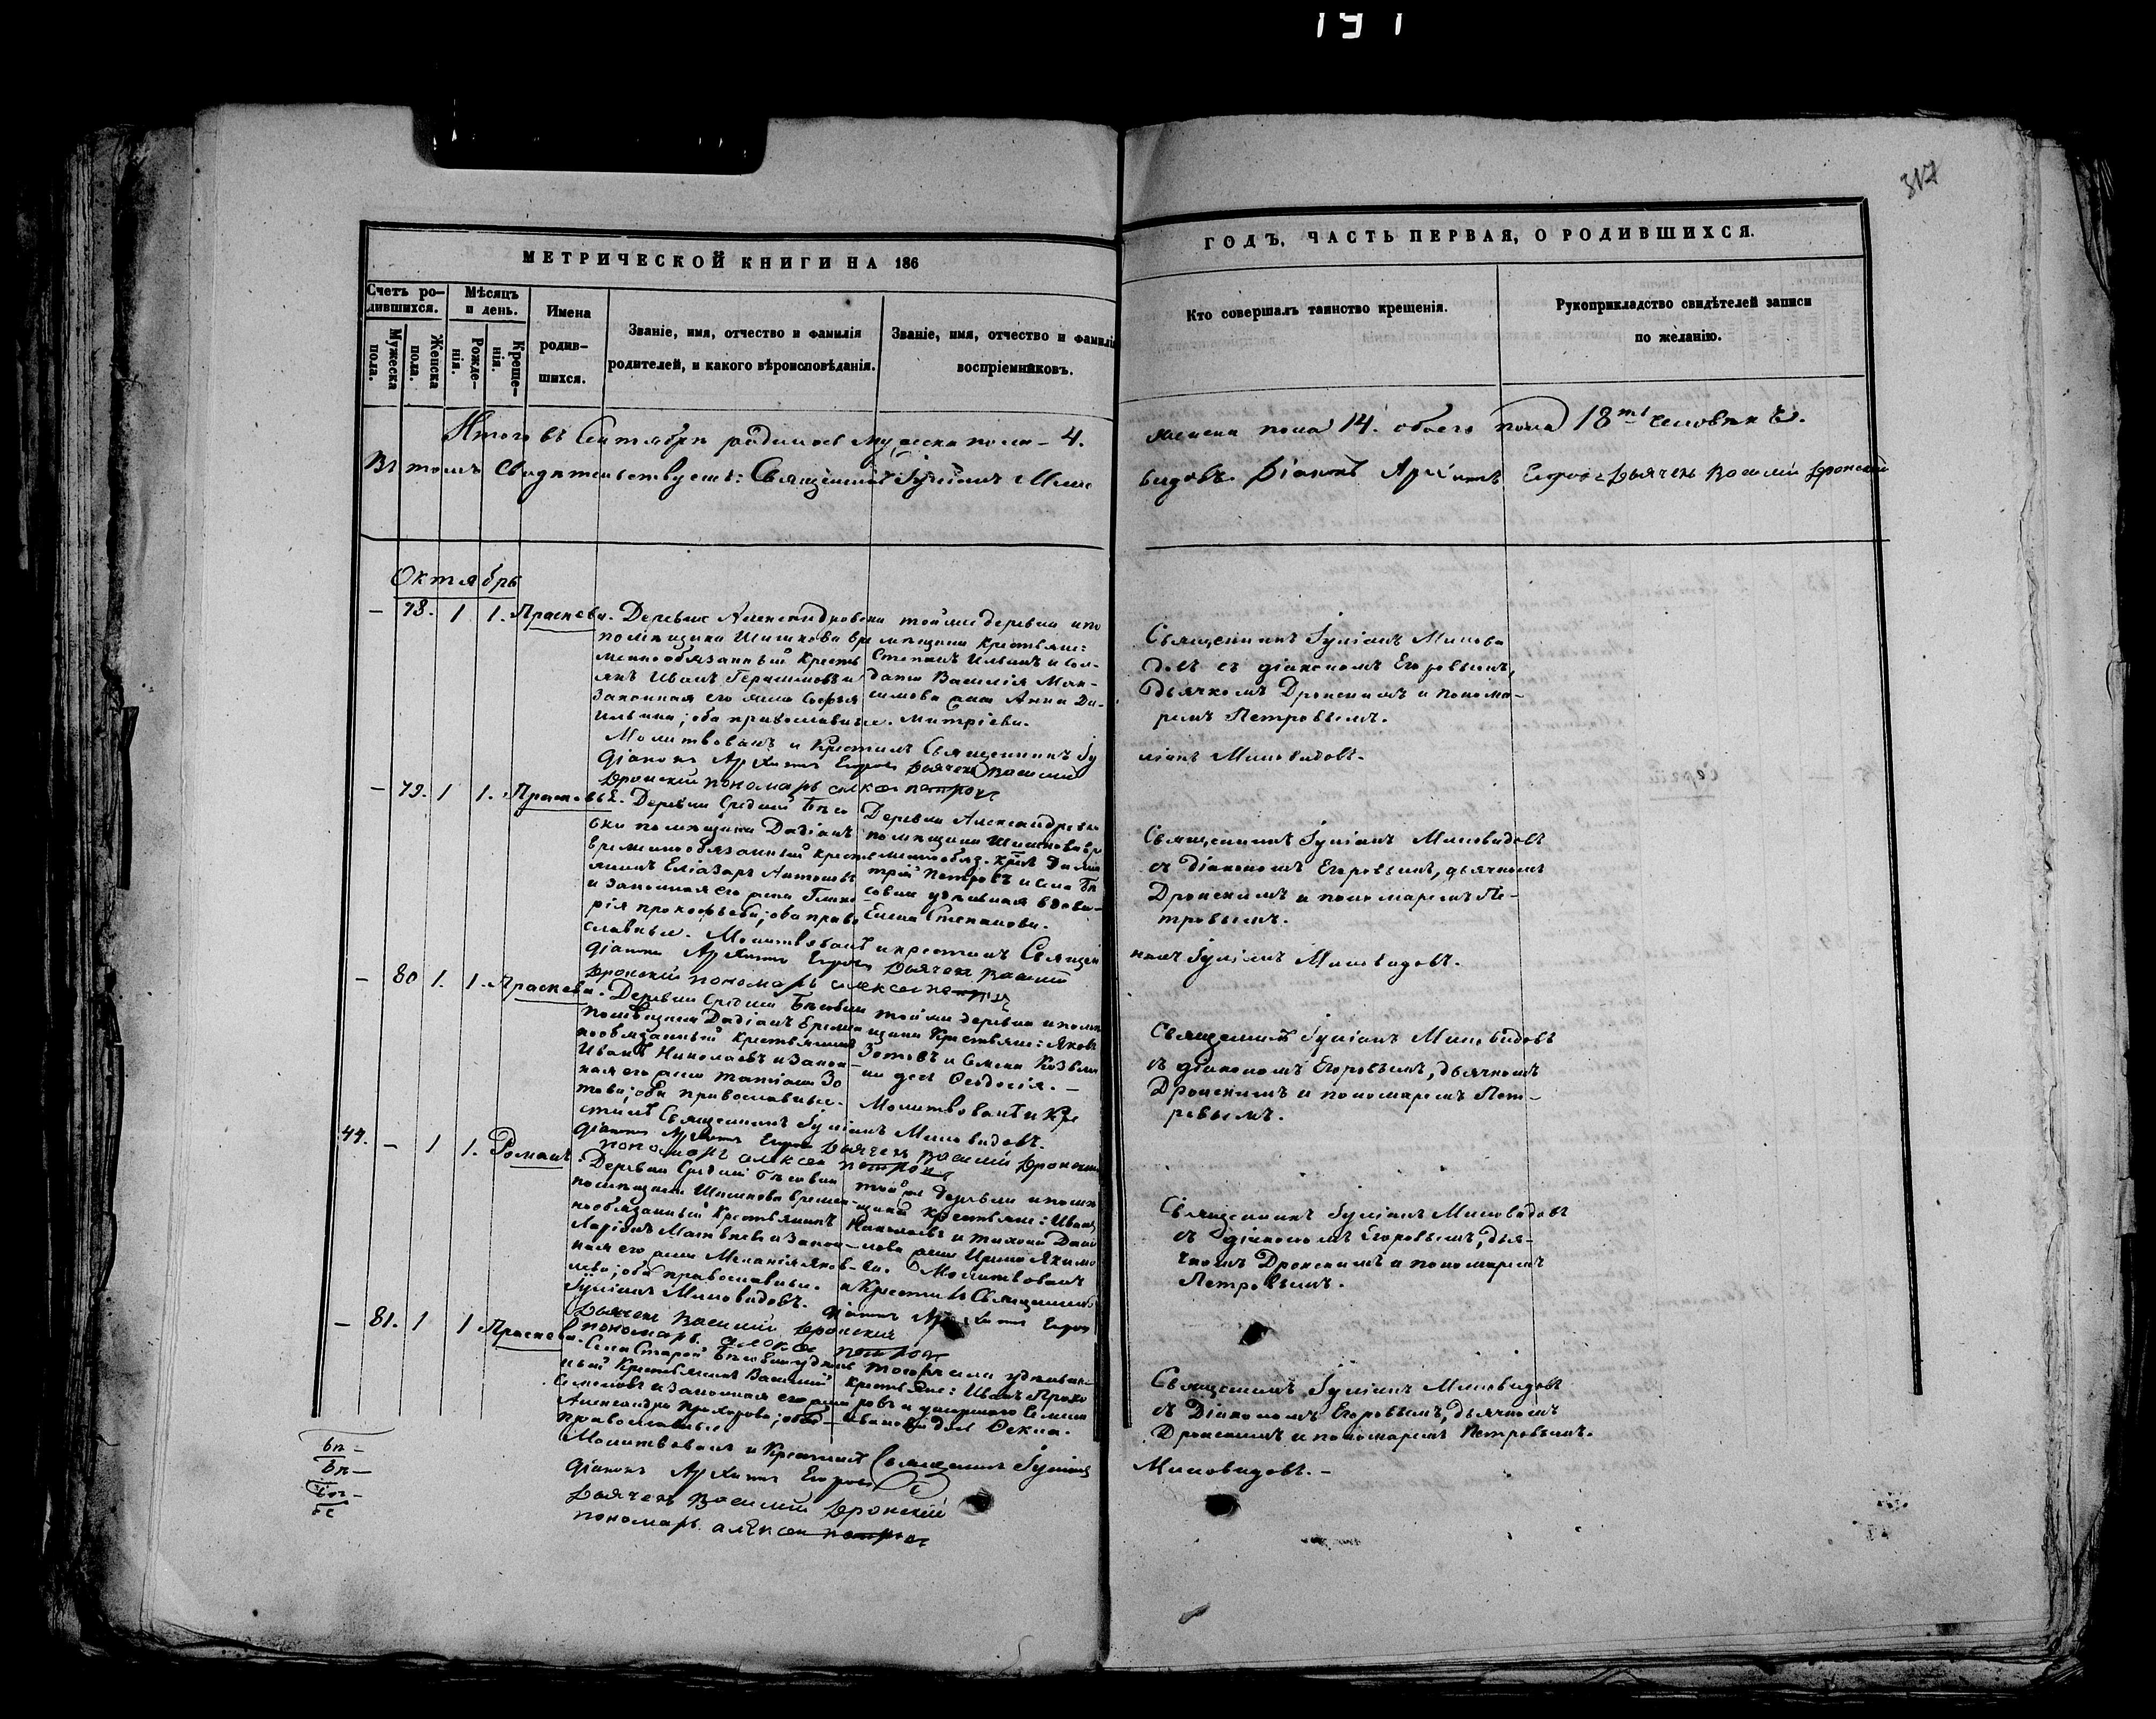 191
317
МЕТРИЧЕСКОЙ КНИГИ НА 186
ГОДЪ, ЧАСТЬ ПЕРВАЯ, О РОДИВШИХСЯ.
Счетъ ро-
дившихся.
Мужеска
пола.
Женска
пола.
Мѣсяцъ
и день.
Рожде-
нія.
Креще-
нія.
Имена
родив-
шихся.
Званіе, имя, отчество и фамилія
родителей, и какого вѣроисповѣданія.
Званіе, имя, отчество и фамилі
воспріемниковъ.
Кто совершалъ таинство крещенія.
Рукоприкладство свидѣтелей записи
по желанію.
Итого въ Сентябрѣ родилось мужеска пола - 4.
женска пола 14. обоего пола 18ть человѣкъ.
Въ томъ свидѣтельствуемъ: Священникъ Іуліанъ Мино
видовъ Діаконъ Архипъ Егоровъ Дьячекъ Василій Дронскій
Октябрь
- 78. 1 1. Праскева.
Деревни Александровки
помѣщика Шишкова вре
меннообязанный кресть
янъ Иванъ Герасимовъ и
законная его жена Софья
Ильина; оба православные.
той же деревни и по
мѣщика крестьяне:
Степанъ Ильинъ и сол-
дата Василія Мак-
симова жена Анна Ди-
митріева.
Священникъ Іуліанъ Минови
довъ съ діакономъ Егоровымъ,
дьячкомъ Дронскимъ и понома-
ремъ Петровымъ.
Молитвовалъ и крестилъ Священникъ Іу
ліанъ Миновидовъ.
Діаконъ Архипъ Егоровъ Дьячекъ Василій
Дронскій пономарь Алексей Петровъ
- 79. 1 1. Праскева.
Деревни Средней Бѣсо
вки помѣщика Дадіанъ
временнообязанный кресть
янинъ Еліазаръ Антоновъ
и законная его жена Глике
рія Прокофьева; оба право
славные.
Деревни Александровки
помѣщика Шишкова вре
меннообяз. кр. Дими
трій Петровъ и села Бѣ
совки удѣльная вдова
Елена Степанова.
Священникъ Іуліанъ Миновидовъ
съ діакономъ Егоровымъ, дьячкомъ
Дронскимъ и пономаремъ Пе-
тровымъ.
Молитвовалъ и крестилъ Священ
никъ Іуліанъ Миновидовъ.
Діаконъ Архипъ Егоровъ Дьячекъ Василій
Дронскій пономарь Алексей Петровъ
- 80 1. 1. Праскева.
Деревни Средней Бѣсовки
помѣщика Дадіанъ времен
нообязанный крестьянинъ
Иванъ Николаевъ и закон-
ная его жена Татіана Зо
това; оба православные.
той же деревни и помѣ
щика крестьяне: Яковъ
Зотовъ и Семена Козьми
на дочь Феодосія. -
Священникъ Іуліанъ Миновидовъ
съ діакономъ Егоровымъ, дьячкомъ
Дронскимъ и пономаремъ Пет-
ровымъ.
Молитвовалъ и кре
стилъ Священникъ Іуліанъ Миновидовъ.
Діаконъ Архипъ Егоровъ Дьячекъ Василій Дронскій
пономарь Алексей Петровъ
44. - 1 1. Романъ.
Деревни Средней Бѣсовки
помѣщика Шишкова времен-
нообязанный крестьянинъ
Ларіонъ Матвѣевъ и закон-
ная его жена Меланія Яков-
лева; оба православные.
той же деревни и помѣ
щика крестьяне: Иванъ
Николаевъ и Тихона Дани
лова жена Ирина Якимо
ва.
Священникъ Іуліанъ Миновидовъ
съ діакономъ Егоровымъ, дья-
чкомъ Дронскимъ и пономаремъ
Петровымъ.
Молитвовалъ
и крестилъ Священникъ
Іуліанъ Миновидовъ.
Діаконъ Архипъ Егоровъ
Дьячекъ Василій Дронскій
пономарь Алексей Петровъ
- 81. 1 1 Праскева.
Села Старой Бѣсовки удѣль
ный крестьянинъ Василій
Семеновъ и законная его жена
Александра Прохорова; оба
православные
того же села удѣльные
крестьяне: Иванъ Прохо
ровъ и умершаго Семена
Иванова дочь Фекла.
Священникъ Іуліанъ Миновидовъ
съ Діакономъ Егоровымъ, дьячкомъ
Дронскимъ и пономаремъ Петровымъ.
Молитвовалъ и крестилъ Священникъ Іуліанъ
Миновидовъ. -
Діаконъ Архипъ Егоровъ
Дьячекъ Василій Дронскій
пономарь Алексей Петровъ